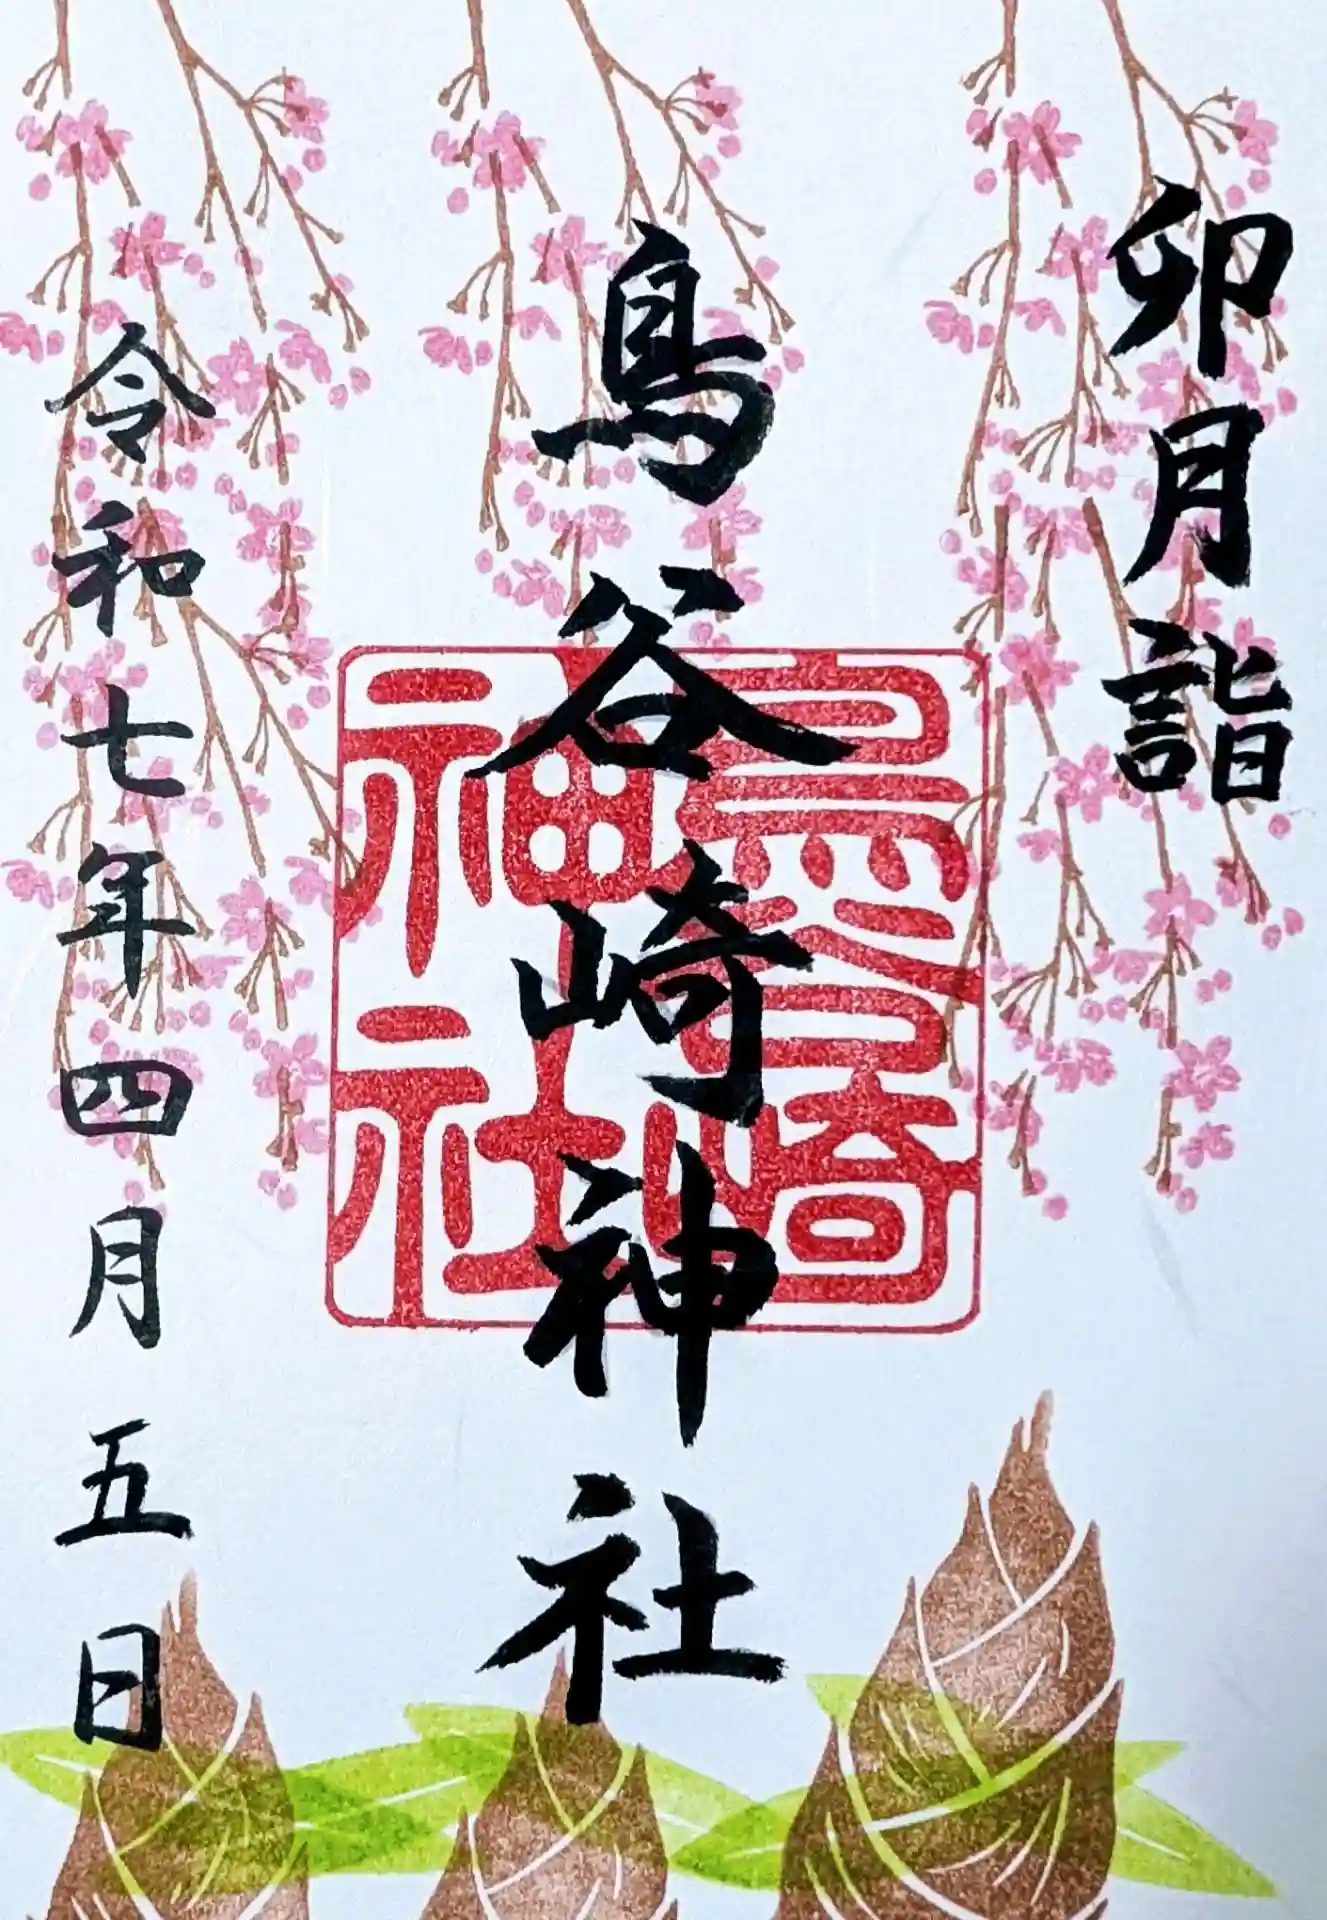 卯月詣
鳥谷崎神社
鳥谷崎
神社
令和七年四月五日